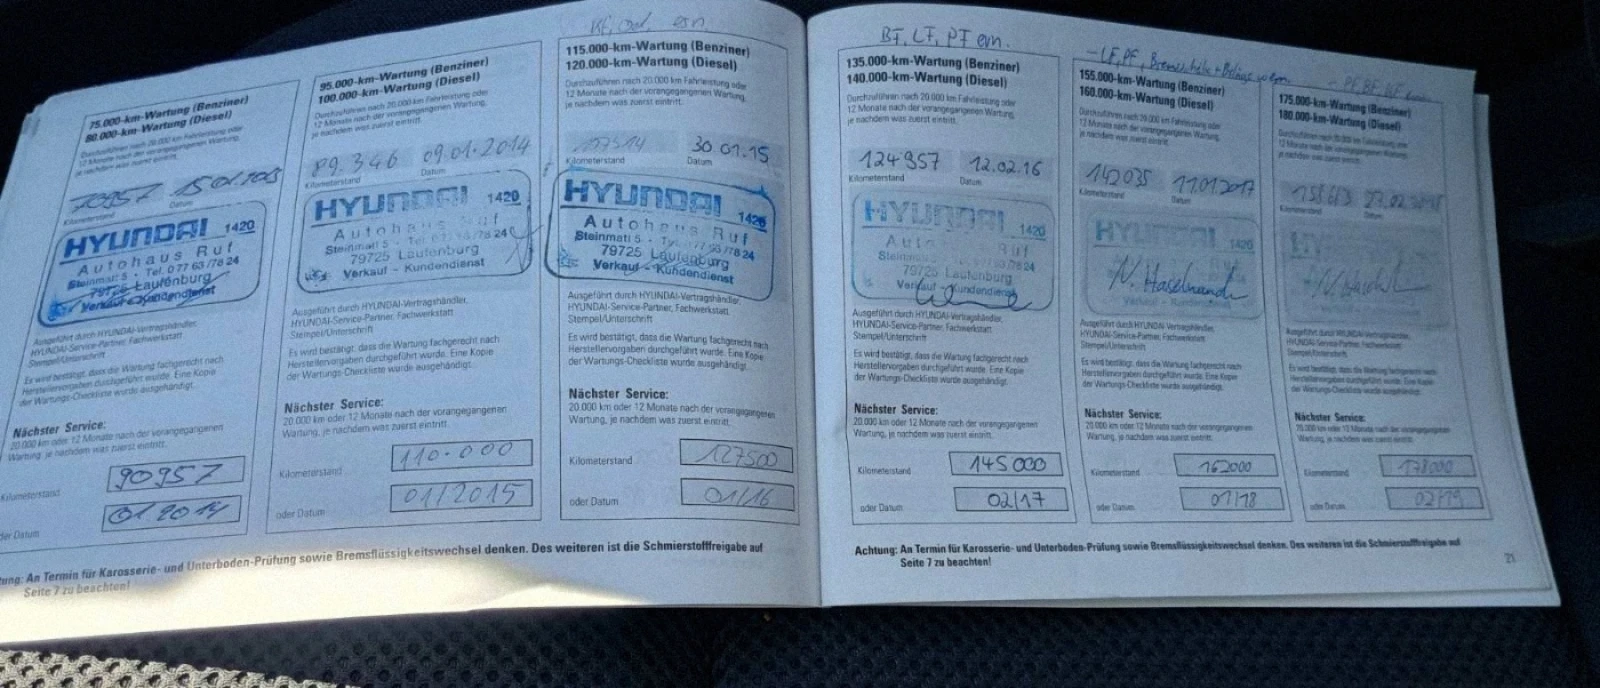 75.000-km-Wartung (Benziner)
80.000-km-Wartung (Diesel)
Durchzuführen nach 20.000 km Fahrleistung oder
12 Monate nach der vorangegangenen Wartung,
je nachdem was zuerst eintritt.
70957 15.01.2013
Kilometerstand Datum
HYUNDAI 1420
Autohaus Ruf
Steinmatt 5 - Tel. 0 77 63 / 78 24
79725 Laufenburg
Verkauf - Kundendienst
Ausgeführt durch HYUNDAI-Vertragshändler,
HYUNDAI-Service-Partner, Fachwerkstatt
Stempel/Unterschrift
Es wird bestätigt, dass die Wartung fachgerecht nach
Herstellervorgaben durchgeführt wurde. Eine Kopie
der Wartungs-Checkliste wurde ausgehändigt.
Nächster Service:
20.000 km oder 12 Monate nach der vorangegangenen
Wartung, je nachdem was zuerst eintritt.
Kilometerstand 90957
oder Datum 01.2014
95.000-km-Wartung (Benziner)
100.000-km-Wartung (Diesel)
Durchzuführen nach 20.000 km Fahrleistung oder
12 Monate nach der vorangegangenen Wartung,
je nachdem was zuerst eintritt.
89.346 09.01.2014
Kilometerstand Datum
HYUNDAI 1420
Autohaus Ruf
Steinmatt 5 - Tel 0 77 63 / 78 24
79725 Laufenburg
Verkauf - Kundendienst
Ausgeführt durch HYUNDAI-Vertragshändler,
HYUNDAI-Service-Partner, Fachwerkstatt
Stempel/Unterschrift
Es wird bestätigt, dass die Wartung fachgerecht nach
Herstellervorgaben durchgeführt wurde. Eine Kopie
der Wartungs-Checkliste wurde ausgehändigt.
Nächster Service:
20.000 km oder 12 Monate nach der vorangegangenen
Wartung, je nachdem was zuerst eintritt.
Kilometerstand 110.000
oder Datum 01/2015
115.000-km-Wartung (Benziner)
120.000-km-Wartung (Diesel)
Durchzuführen nach 20.000 km Fahrleistung oder
12 Monate nach der vorangegangenen Wartung,
je nachdem was zuerst eintritt.
107514 30.01.15
Kilometerstand Datum
HYUNDAI 1420
Autohaus Ruf
Steinmatt 5 - Tel. 0 77 63 / 78 24
79725 Laufenburg
Verkauf - Kundendienst
Ausgeführt durch HYUNDAI-Vertragshändler,
HYUNDAI-Service-Partner, Fachwerkstatt
Stempel/Unterschrift
Es wird bestätigt, dass die Wartung fachgerecht nach
Herstellervorgaben durchgeführt wurde. Eine Kopie
der Wartungs-Checkliste wurde ausgehändigt.
Nächster Service:
20.000 km oder 12 Monate nach der vorangegangenen
Wartung, je nachdem was zuerst eintritt.
Kilometerstand 127500
oder Datum 01/16
tung: An Termin für Karosserie- und Unterboden-Prüfung sowie Bremsflüssigkeitswechsel denken. Des weiteren ist die Schmierstofffreigabe auf
Seite 7 zu beachten!
BF, LF, PF ern.
135.000-km-Wartung (Benziner)
140.000-km-Wartung (Diesel)
Durchzuführen nach 20.000 km Fahrleistung oder
12 Monate nach der vorangegangenen Wartung,
je nachdem was zuerst eintritt.
124957 12.02.16
Kilometerstand Datum
HYUNDAI 1420
Autohaus Ruf
79725 Laufenburg
Verkauf - Kundendienst
Ausgeführt durch HYUNDAI-Vertragshändler,
HYUNDAI-Service-Partner, Fachwerkstatt
Stempel/Unterschrift
Es wird bestätigt, dass die Wartung fachgerecht nach
Herstellervorgaben durchgeführt wurde. Eine Kopie
der Wartungs-Checkliste wurde ausgehändigt.
Nächster Service:
20.000 km oder 12 Monate nach der vorangegangenen
Wartung, je nachdem was zuerst eintritt.
Kilometerstand 145000
oder Datum 02/17
- LF, PF,
155.000-km-Wartung (Benziner)
160.000-km-Wartung (Diesel)
Durchzuführen nach 20.000 km Fahrleistung oder
12 Monate nach der vorangegangenen Wartung,
je nachdem was zuerst eintritt.
142035 17.01.2017
Kilometerstand Datum
HYUNDAI 1420
Ausgeführt durch HYUNDAI-Vertragshändler,
HYUNDAI-Service-Partner, Fachwerkstatt
Stempel/Unterschrift
Es wird bestätigt, dass die Wartung fachgerecht nach
Herstellervorgaben durchgeführt wurde. Eine Kopie
der Wartungs-Checkliste wurde ausgehändigt.
Nächster Service:
20.000 km oder 12 Monate nach der vorangegangenen
Wartung, je nachdem was zuerst eintritt.
Kilometerstand 162000
oder Datum 01/18
175.000-km-Wartung (Benziner)
180.000-km-Wartung (Diesel)
Durchzuführen nach 20.000 km Fahrleistung oder
12 Monate nach der vorangegangenen Wartung,
je nachdem was zuerst eintritt.
Kilometerstand Datum
Ausgeführt durch HYUNDAI-Vertragshändler,
HYUNDAI-Service-Partner, Fachwerkstatt
Stempel/Unterschrift
Es wird bestätigt, dass die Wartung fachgerecht nach
Herstellervorgaben durchgeführt wurde. Eine Kopie
der Wartungs-Checkliste wurde ausgehändigt.
Nächster Service:
20.000 km oder 12 Monate nach der vorangegangenen
Wartung, je nachdem was zuerst eintritt.
Kilometerstand 178000
oder Datum 02/19
Achtung: An Termin für Karosserie- und Unterboden-Prüfung sowie Bremsflüssigkeitswechsel denken. Des weiteren ist die Schmierstofffreigabe auf
Seite 7 zu beachten!
21